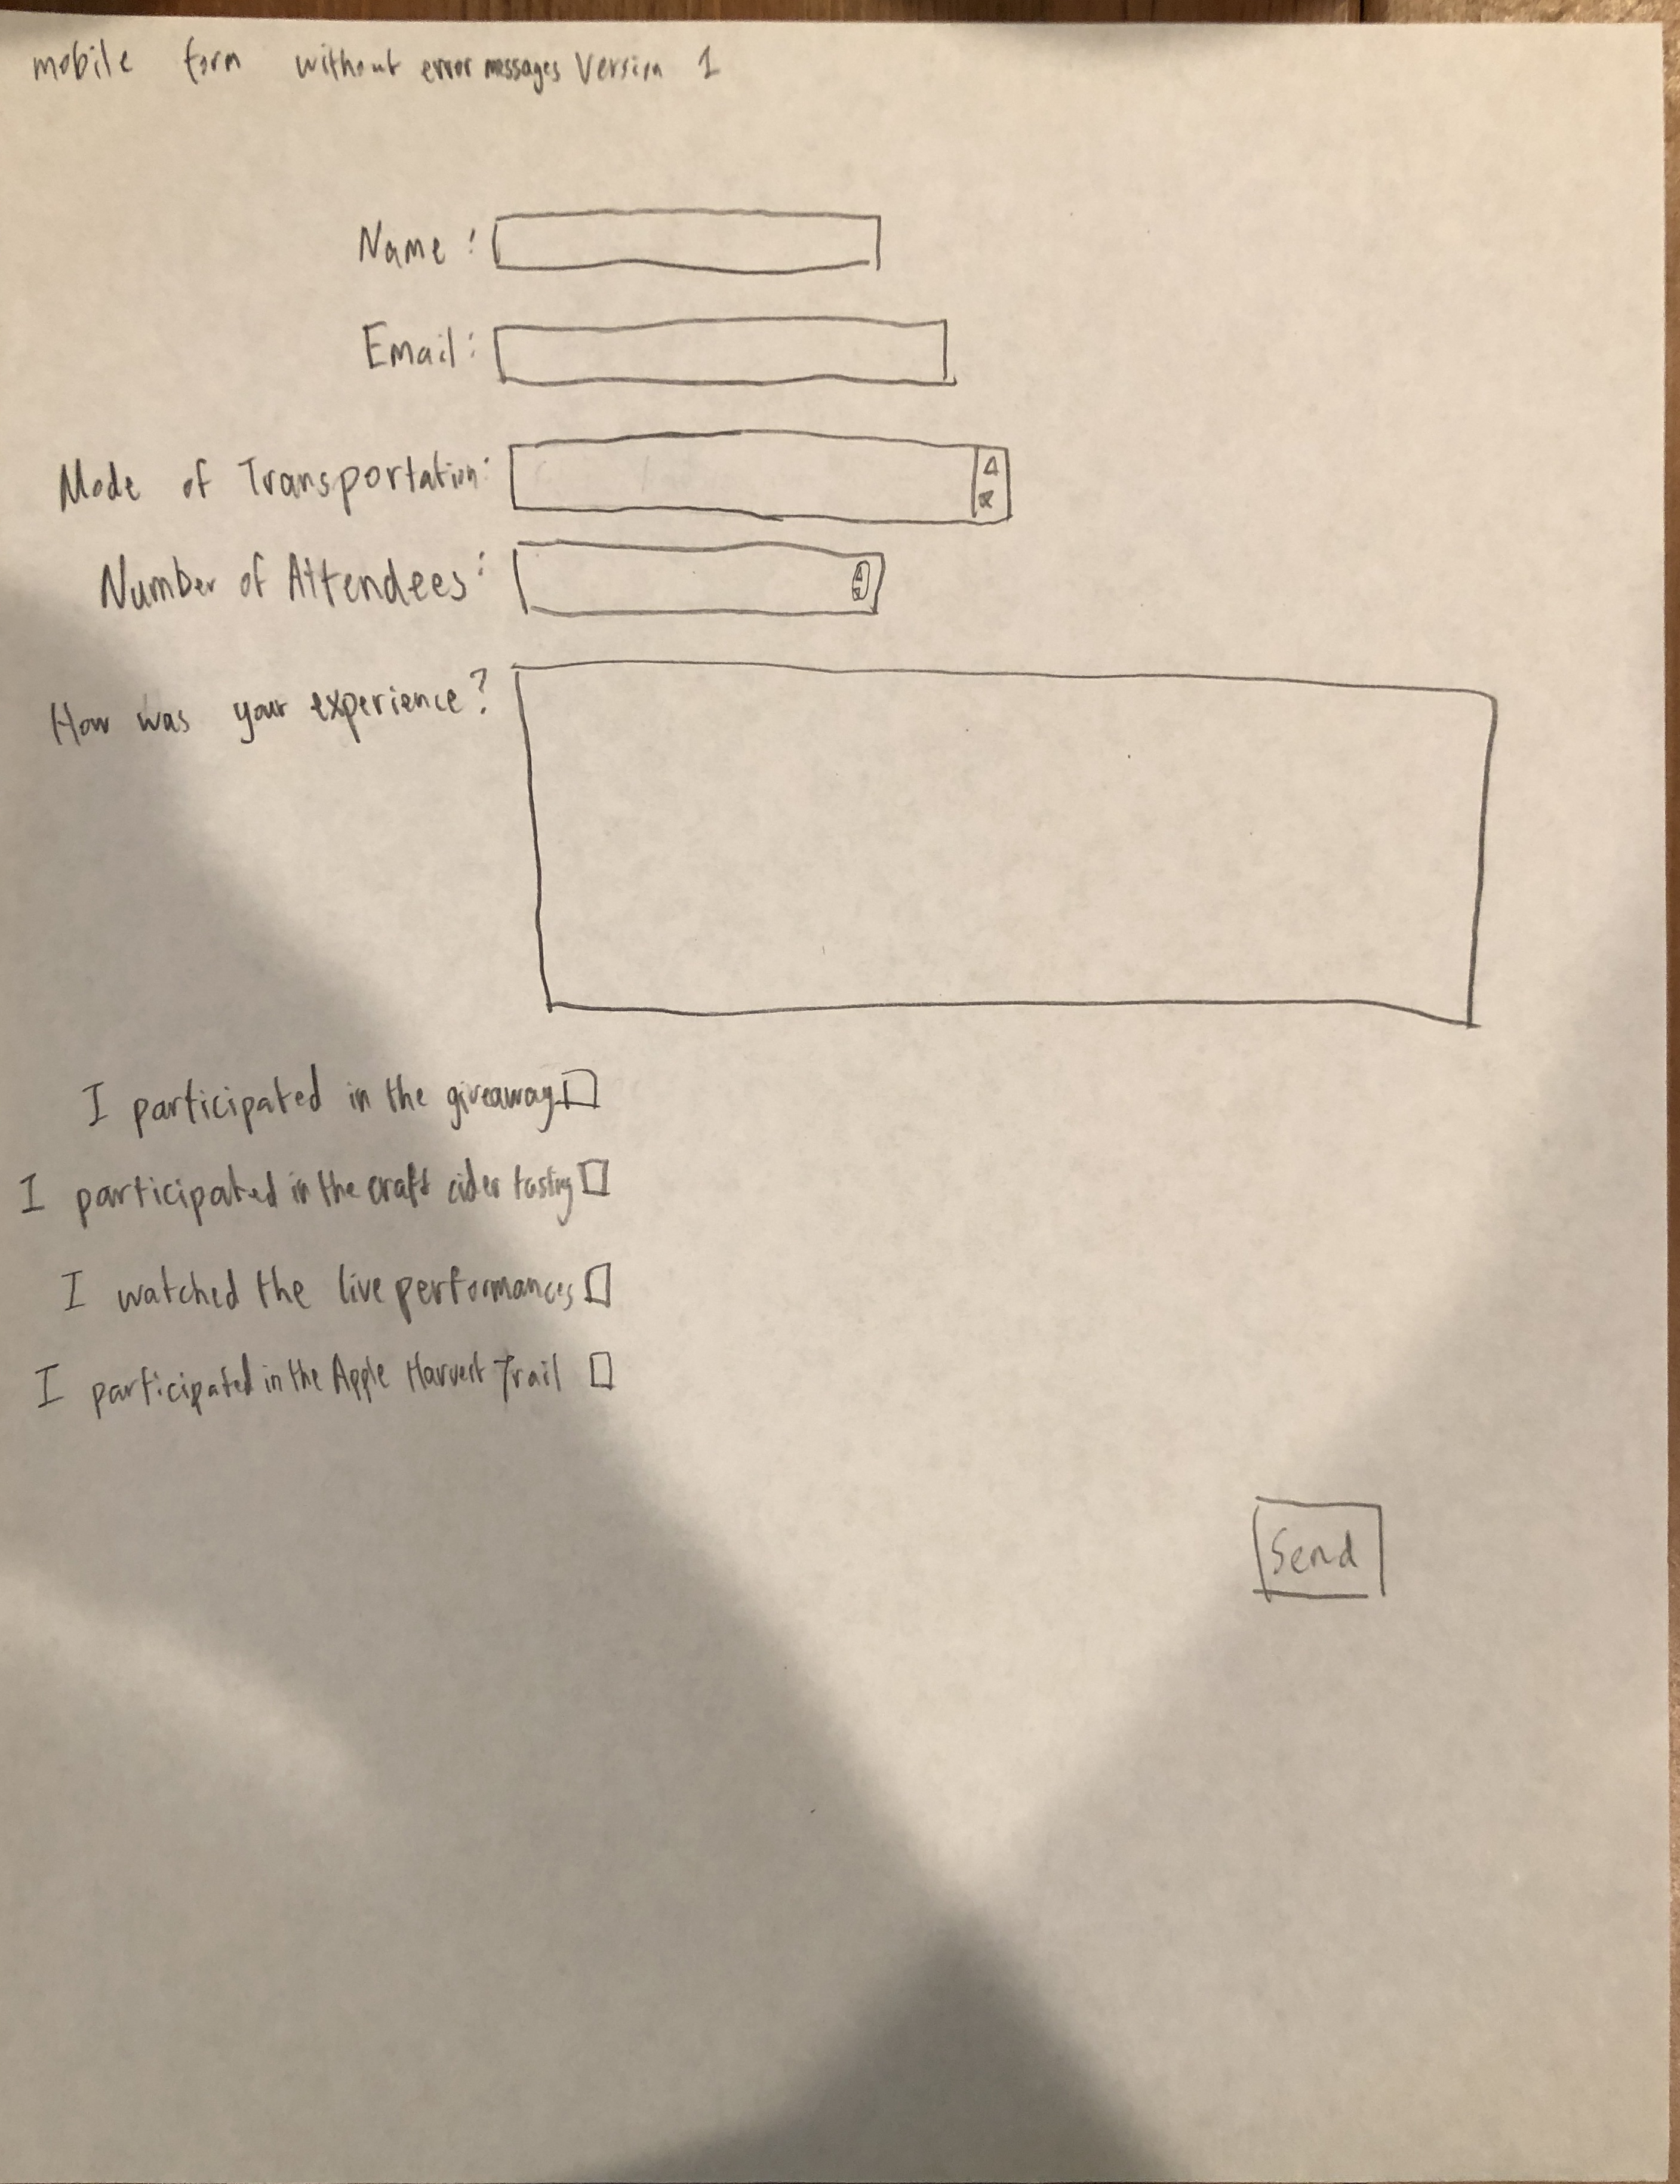 mobile form without error messages Version 1
Name:
Email:
Mode of Transportation:
Number of Attendees:
How was your experience?
I participated in the giveaway
I participated in the craft cider tasting
I watched the live performances
I participated in the Apple Harvest Trail
Send